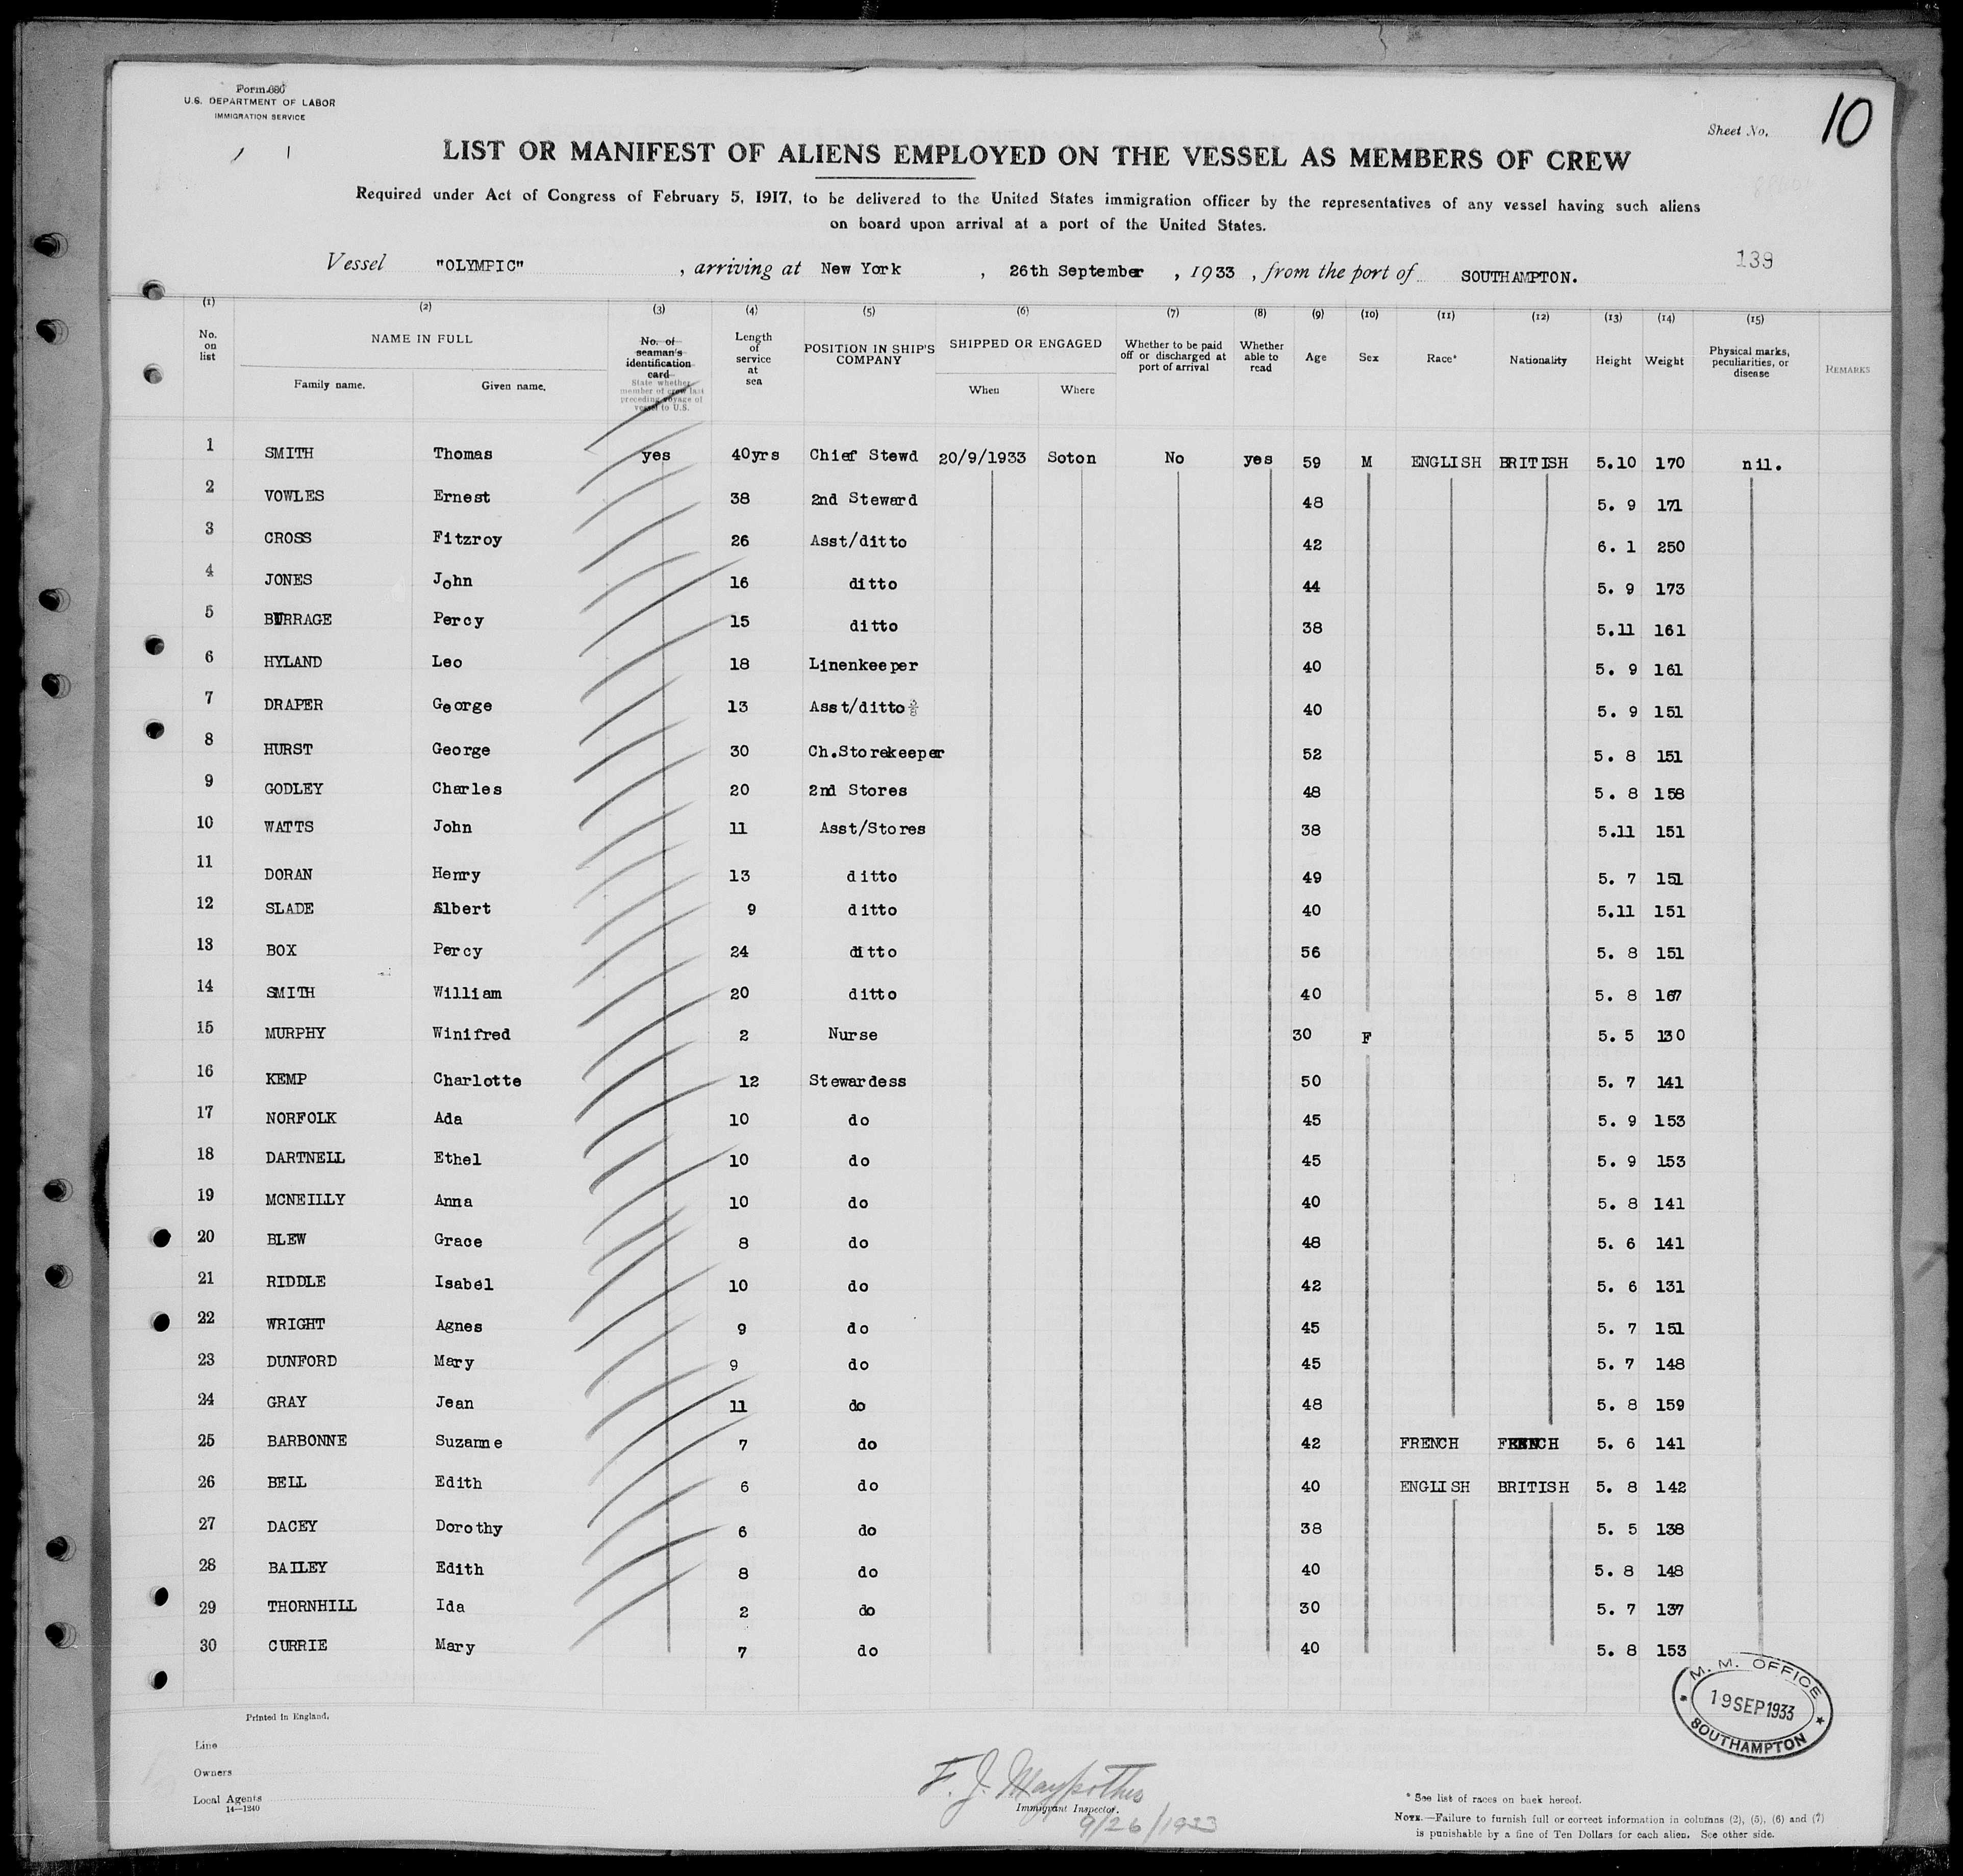 Form 680
U.S. DEPARTMENT OF LABOR
IMMIGRATION SERVICE
Sheet No. 10
LIST OR MANIFEST OF ALIENS EMPLOYED ON THE VESSEL AS MEMBERS OF CREW
Required under Act of Congress of February 5, 1917, to be delivered to the United States immigration officer by the representatives of any vessel having such aliens
on board upon arrival at a port of the United States.
139
Vessel "OLYMPIC" , arriving at New York , 26th September , 1933 , from the port of SOUTHAMPTON.
(1) (2) (3) (4) (5) (6) (7) (8) (9) (10) (11) (12) (13) (14) (15)
No. on list NAME IN FULL Family name. Given name. No. of seaman's identification card State whether member of crew last preceding voyage of vessel to U.S. Length of service at sea POSITION IN SHIP'S COMPANY SHIPPED OR ENGAGED When Where Whether to be paid off or discharged at port of arrival Whether able to read Age Sex Race* Nationality Height Weight Physical marks, peculiarities, or disease REMARKS
1 SMITH Thomas yes 40yrs Chief Stewd 20/9/1933 Soton No yes 59 M ENGLISH BRITISH 5.10 170 nil.
2 VOWLES Ernest 38 2nd Steward 48 5. 9 171
3 CROSS Fitzroy 26 Asst/ditto 42 6. 1 250
4 JONES John 16 ditto 44 5. 9 173
5 BURRAGE Percy 15 ditto 38 5.11 161
6 HYLAND Leo 18 Linenkeeper 40 5. 9 161
7 DRAPER George 13 Asst/ditto 40 5. 9 151
8 HURST George 30 Ch.Storekeeper 52 5. 8 151
9 GODLEY Charles 20 2nd Stores 48 5. 8 158
10 WATTS John 11 Asst/Stores 38 5.11 151
11 DORAN Henry 13 ditto 49 5. 7 151
12 SLADE Albert 9 ditto 40 5.11 151
13 BOX Percy 24 ditto 56 5. 8 151
14 SMITH William 20 ditto 40 5. 8 167
15 MURPHY Winifred 2 Nurse 30 F 5. 5 130
16 KEMP Charlotte 12 Stewardess 50 5. 7 141
17 NORFOLK Ada 10 do 45 5. 9 153
18 DARTNELL Ethel 10 do 45 5. 9 153
19 MCNEILLY Anna 10 do 40 5. 8 141
20 BLEW Grace 8 do 48 5. 6 141
21 RIDDLE Isabel 10 do 42 5. 6 131
22 WRIGHT Agnes 9 do 45 5. 7 151
23 DUNFORD Mary 9 do 45 5. 7 148
24 GRAY Jean 11 do 48 5. 8 159
25 BARBONNE Suzanne 7 do 42 FRENCH FRENCH 5. 6 141
26 BELL Edith 6 do 40 ENGLISH BRITISH 5. 8 142
27 DACEY Dorothy 6 do 38 5. 5 138
28 BAILEY Edith 8 do 40 5. 8 148
29 THORNHILL Ida 2 do 30 5. 7 137
30 CURRIE Mary 7 do 40 5. 8 153
M. M. OFFICE
19 SEP 1933
SOUTHAMPTON
Printed in England.
Line
Owners
Local Agents
14—1240
F. J.
Immigrant Inspector.
9/26/1933
* See list of races on back hereof.
NOTE.—Failure to furnish full or correct information in columns (2), (5), (6) and (7)
is punishable by a fine of Ten Dollars for each alien. See other side.